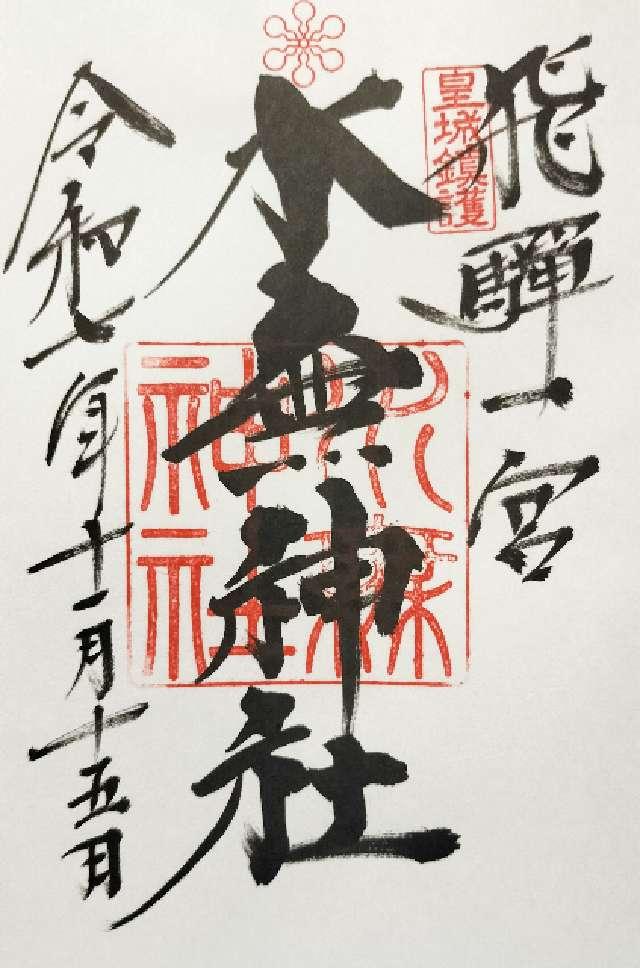 飛騨一宮
皇城鎮護
水無神社
水無神社
令和七年十一月十五日